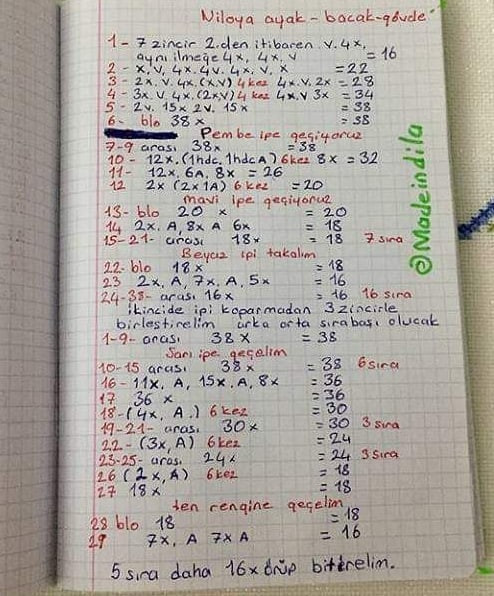 Niloya ayak-bacak-gövde
1- 7 zincir 2.den itibaren. v. 4x,
aynı ilmeğe 4x, 4x, v = 16
2- x, v, 4x. 4v. 4x, v, x = 22
3- 2x. v. 4x. (x,v) 4 kez 4x. v. 2x = 28
4- 3x. v. 4x. (2x,v) 4 kez 4x. v 3x = 34
5- 2v. 15x 2v. 15x = 38
6- blo 38x = 38
Pembe ipe geçiyoruz
7-9 arası 38x = 38
10- 12x. (1hdc. 1hdc A) 6 kez 8x = 32
11- 12x, 6A, 8x = 26
12 2x (2x1A) 6 kez = 20
mavi ipe geçiyoruz
13- blo 20 x = 20
14 2x. A, 8x A 6x = 18
15-21- arası 18x = 18 7 sıra
Beyaz ipi takalım
22- blo 18x = 18
23 2x, A, 7x. A, 5x = 16
24-38- arası 16x = 16 16 sıra
ikincide ipi koparmadan 3 zincirle
birleştirelim arka orta sıra başı olucak
1-9- arası 38x = 38
Sarı ipe geçelim
10-15 arası 38x = 38 6 sıra
16- 11x. A, 15x. A, 8x = 36
17 36 x = 36
18-(4x, A.) 6 kez = 30
19-21- arası 30x = 30 3 sıra
22-(3x, A) 6 kez = 24
23-25- arası 24x = 24 3 sıra
26 (2x, A) 6 kez = 18
27 18x = 18
ten rengine geçelim
28 blo 18 = 18
29 7x, A 7x A = 16
5 sıra daha 16x örüp bitirelim.
@Madeindila